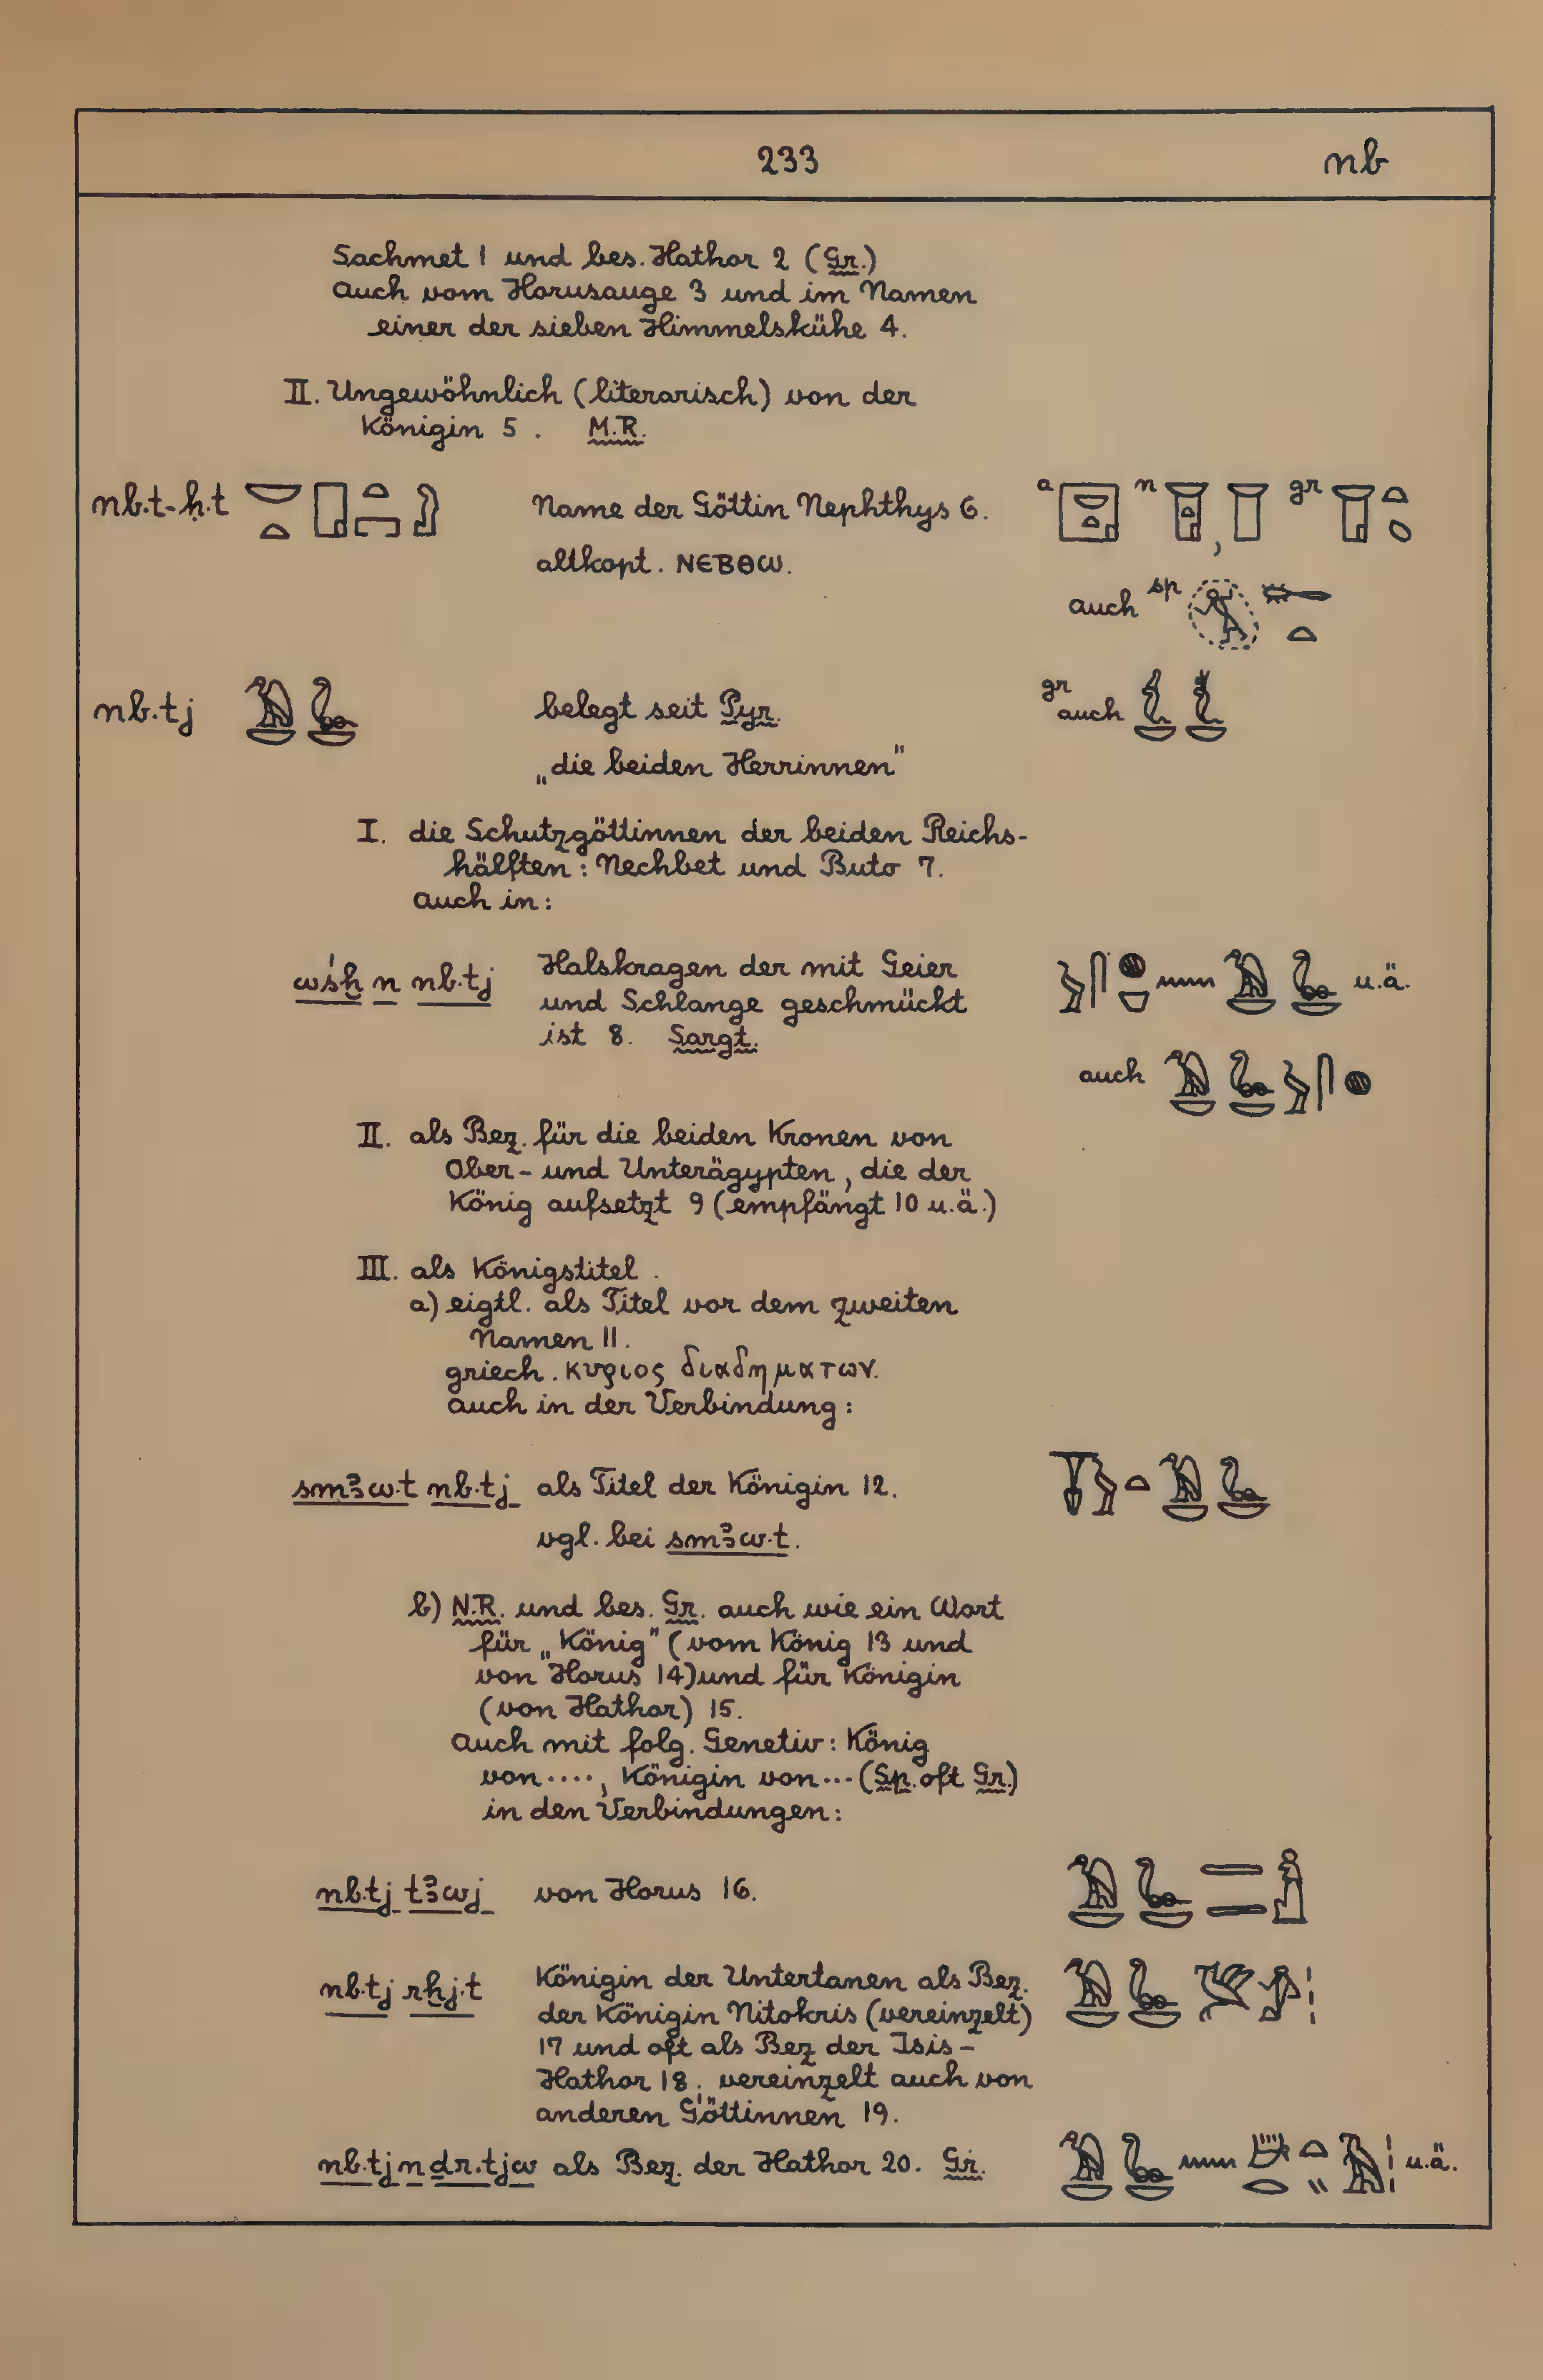 233 nb
Sachmet 1 und bes. Hathor 2 (Gr.)
auch vom Horusauge 3 und im Namen
einer der sieben Himmelskühe 4.
II. Ungewöhnlich (literarisch) von der
Königin 5. M.R.
nb.t-ḥ.t 𓎟𓏏𓉗𓏏𓉐𓆇 Name der Göttin Nephthys 6. a n , gr
altkopt. ΝΕΒΘΩ.
auch sp
nb.tj 𓅒 belegt seit Pyr. gr auch
„die beiden Herrinnen"
I. die Schutzgöttinnen der beiden Reichs-
hälften: Nechbet und Buto 7.
auch in:
wśḫ n nb.tj Halskragen der mit Geier u.ä.
und Schlange geschmückt
ist 8. Sargt.
auch
II. als Bez. für die beiden Kronen von
Ober- und Unterägypten, die der
König aufsetzt 9 (empfängt 10 u.ä.)
III. als Königstitel.
a) eigtl. als Titel vor dem zweiten
Namen 11.
griech. κυριος διαδηματων.
auch in der Verbindung:
smꜣw.t nb.tj als Titel der Königin 12.
vgl. bei smꜣw.t.
b) N.R. und bes. Gr. auch wie ein Wort
für „König" (vom König 13 und
von Horus 14) und für Königin
(von Hathor) 15.
auch mit folg. Genetiv: König
von ...., Königin von ... (Sp. oft Gr.)
in den Verbindungen:
nb.tj tꜣwj von Horus 16.
nb.tj rḫj.t Königin der Untertanen als Bez.
der Königin Nitokris (vereinzelt)
17 und oft als Bez der Isis-
Hathor 18; vereinzelt auch von
anderen Göttinnen 19.
nb.tj n ḏr.tjw als Bez. der Hathor 20. Gr. u.ä.